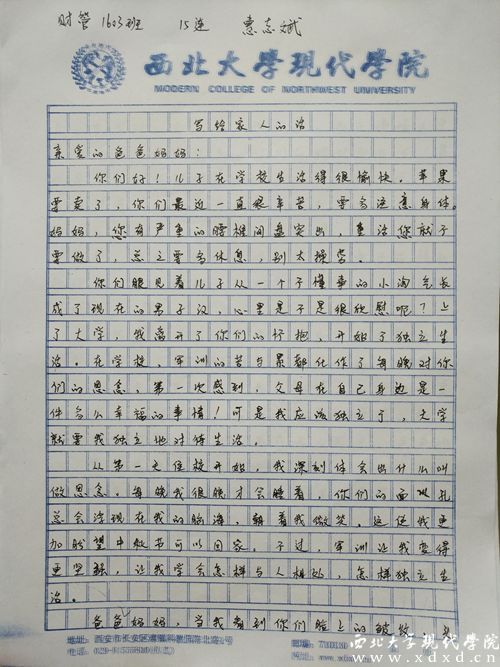 财管1603班 15连 惠志斌
西北大学现代学院
MODERN COLLEGE OF NORTHWEST UNIVERSITY
写给家人的话
亲爱的爸爸妈妈：
你们好！儿子在学校生活得很愉快。苹果
要卖了，你们最近一直很辛苦，要多注意身体。
妈妈，您有严重的腰椎间盘突出，重活您就不
要做了，总之要多休息，别太操劳。
你们眼见着儿子从一个不懂事的小淘气长
成了现在的男子汉，心里是不是很欣慰呢？上
了大学，我离开了你们的怀抱，开始了独立生
活。在学校，军训的苦与累都化作了每晚对你
们的思念，第一次感到，父母在自己身边是一
件多么幸福的事情！可是我应该独立了，大学
就要我独立地对待生活。
从第一天住校开始，我深刻体会出什么叫
做思念。每晚我很晚才会睡着，你们的面孔
总会浮现在我的脑海，朝着我微笑。这使我更
加盼望中秋节可以回家。不过，军训让我变得
更坚强，让我学会怎样与人相处，怎样独立生
活。
爸爸妈妈，当我看到你们脸上的皱纹，
地址：西安市长安区滦镇
西北大学现代学院
www.xdxd.cn